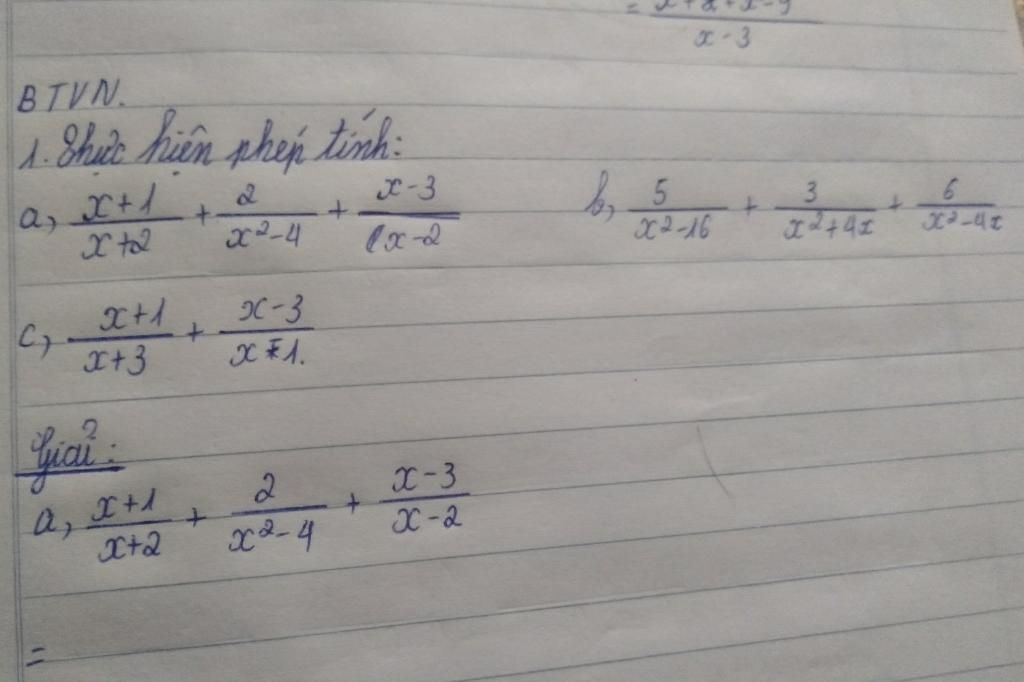 = x+2+x-9 / x-3
BTVN.
1. Thực hiện phép tính:
a, (x+1)/(x+2) + 2/(x²-4) + (x-3)/(x-2) b, 5/(x²-16) + 3/(x²+4x) + 6/(x²-4x)
c, (x+1)/(x+3) + (x-3)/(x-1).
Giải:
a, (x+1)/(x+2) + 2/(x²-4) + (x-3)/(x-2)
=